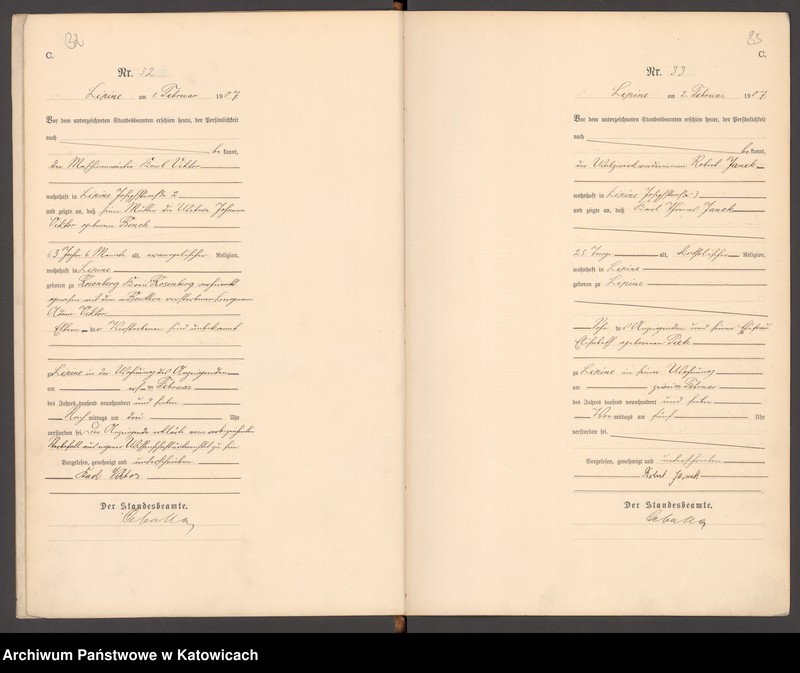 32
C.
Nr. 32
Lipine am 2. Februar 1907.
Vor dem unterzeichneten Standesbeamten erschien heute, der Persönlichkeit
nach
bekannt,
der Maschinenwärter Karl Viktor
wohnhaft in Lipine Josephstraße 2
und zeigte an, daß seine Mutter die Witwe Johanna
Viktor geborene
63 Jahr 6 Monate alt, evangelischer Religion,
wohnhaft in Lipine
geboren zu Rosenberg Kreis Rosenberg verheiratet
gewesen mit dem in Beuthen verstorbenen
Adam Viktor
Eltern der Verstorbenen sind unbekannt
zu Lipine in der Wohnung des Anzeigenden
am ersten Februar
des Jahres tausend neunhundert und sieben
Nachmittags um drei Uhr
verstorben sei. Der Anzeigende erklärte vom vorbezeichneten
Sterbefall aus eigener Wissenschaft unterrichtet zu sein
Vorgelesen, genehmigt und unterschrieben
Karl Viktor
Der Standesbeamte.
33
C.
Nr. 33
Lipine am 2. Februar 1907.
Vor dem unterzeichneten Standesbeamten erschien heute, der Persönlichkeit
nach
bekannt,
der Robert Janek
wohnhaft in Lipine Josephstraße 3
und zeigte an, daß Karl Thomas Janek
25 Tage alt, katholischer Religion,
wohnhaft in Lipine
geboren zu Lipine
Sohn des Anzeigenden und seiner Ehefrau
Elisabeth geborenen
zu Lipine in seiner Wohnung
am zweiten Februar
des Jahres tausend neunhundert und sieben
Vormittags um fünf Uhr
verstorben sei.
Vorgelesen, genehmigt und unterschrieben
Robert Janek
Der Standesbeamte.
Archiwum Państwowe w Katowicach